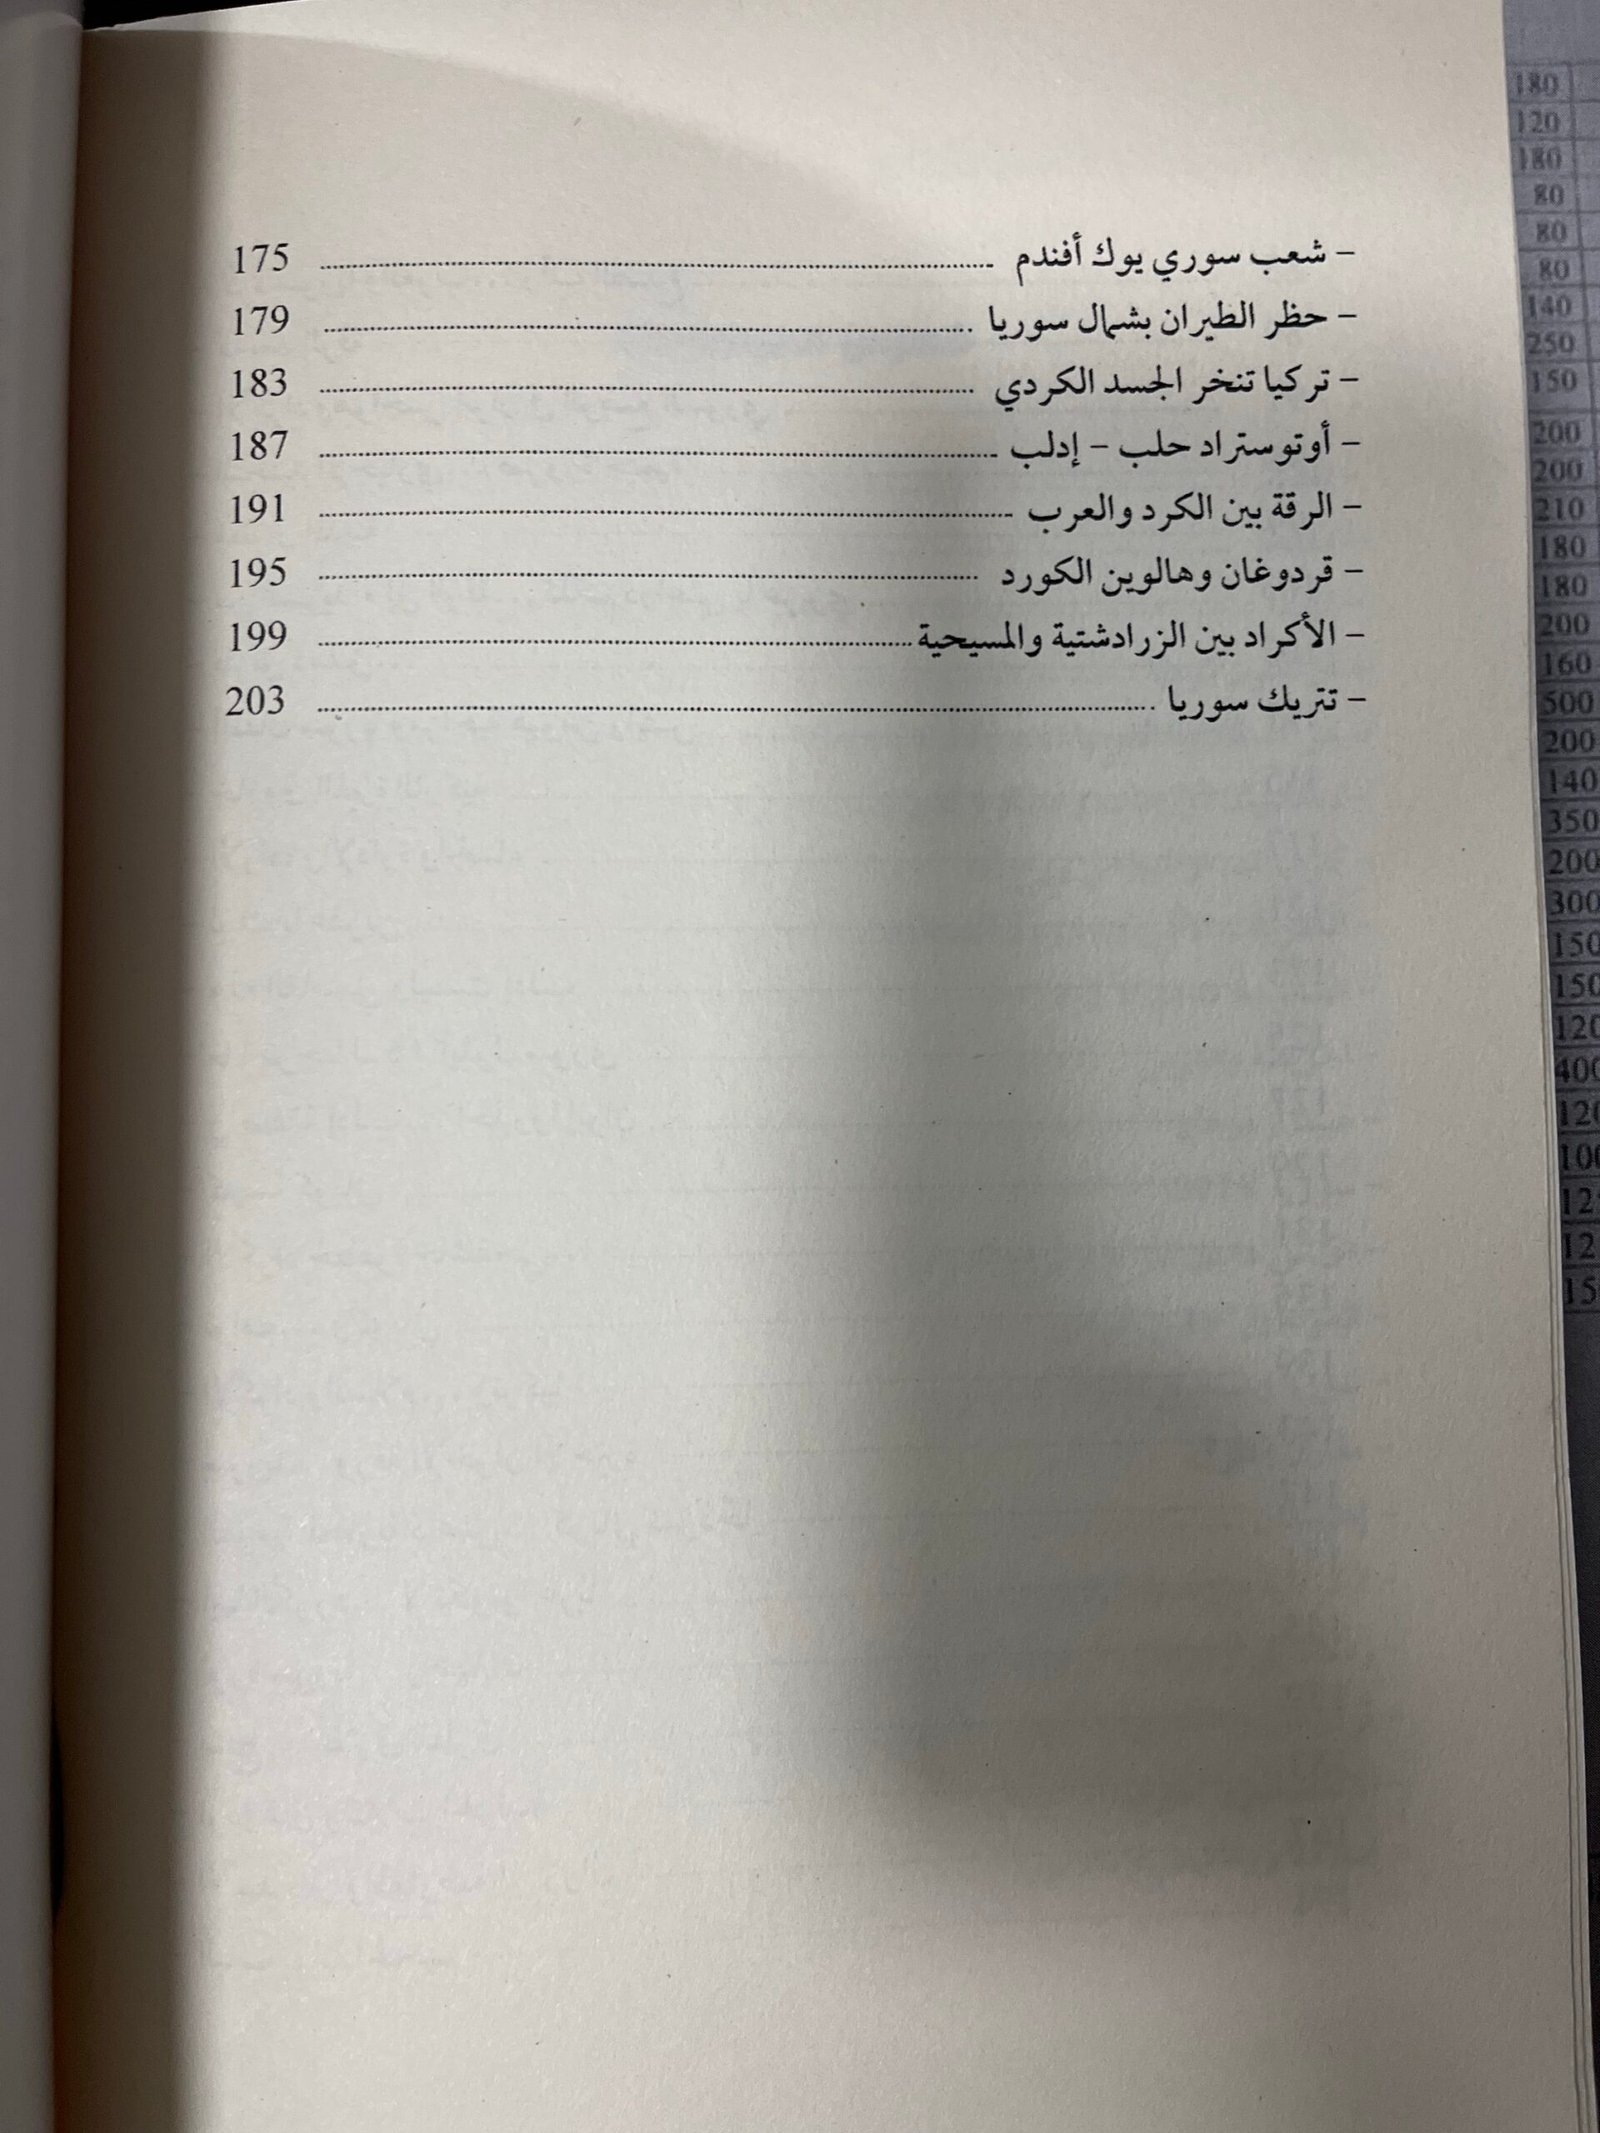 – شعب سوري يوك أفندم ........ 175
– حظر الطيران بشمال سوريا ........ 179
– تركيا تنخر الجسد الكردي ........ 183
– أوتوستراد حلب – إدلب ........ 187
– الرقة بين الكرد والعرب ........ 191
– قردوغان وهالوين الكورد ........ 195
– الأكراد بين الزرادشتية والمسيحية ........ 199
– تتريك سوريا ........ 203
180
120
180
80
80
80
140
250
150
200
200
210
180
180
200
160
500
200
140
350
200
300
150
150
120
400